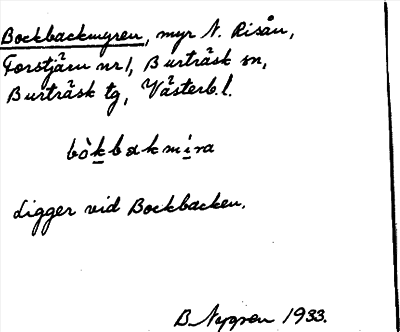 Bockbackmyren, myr N. Risån,
Forstjärn nr 1, Burträsk sn,
Burträsk tg, Västerb. l.
bòkbakmira
Ligger vid Bockbacken.
B. Nygren 1933.